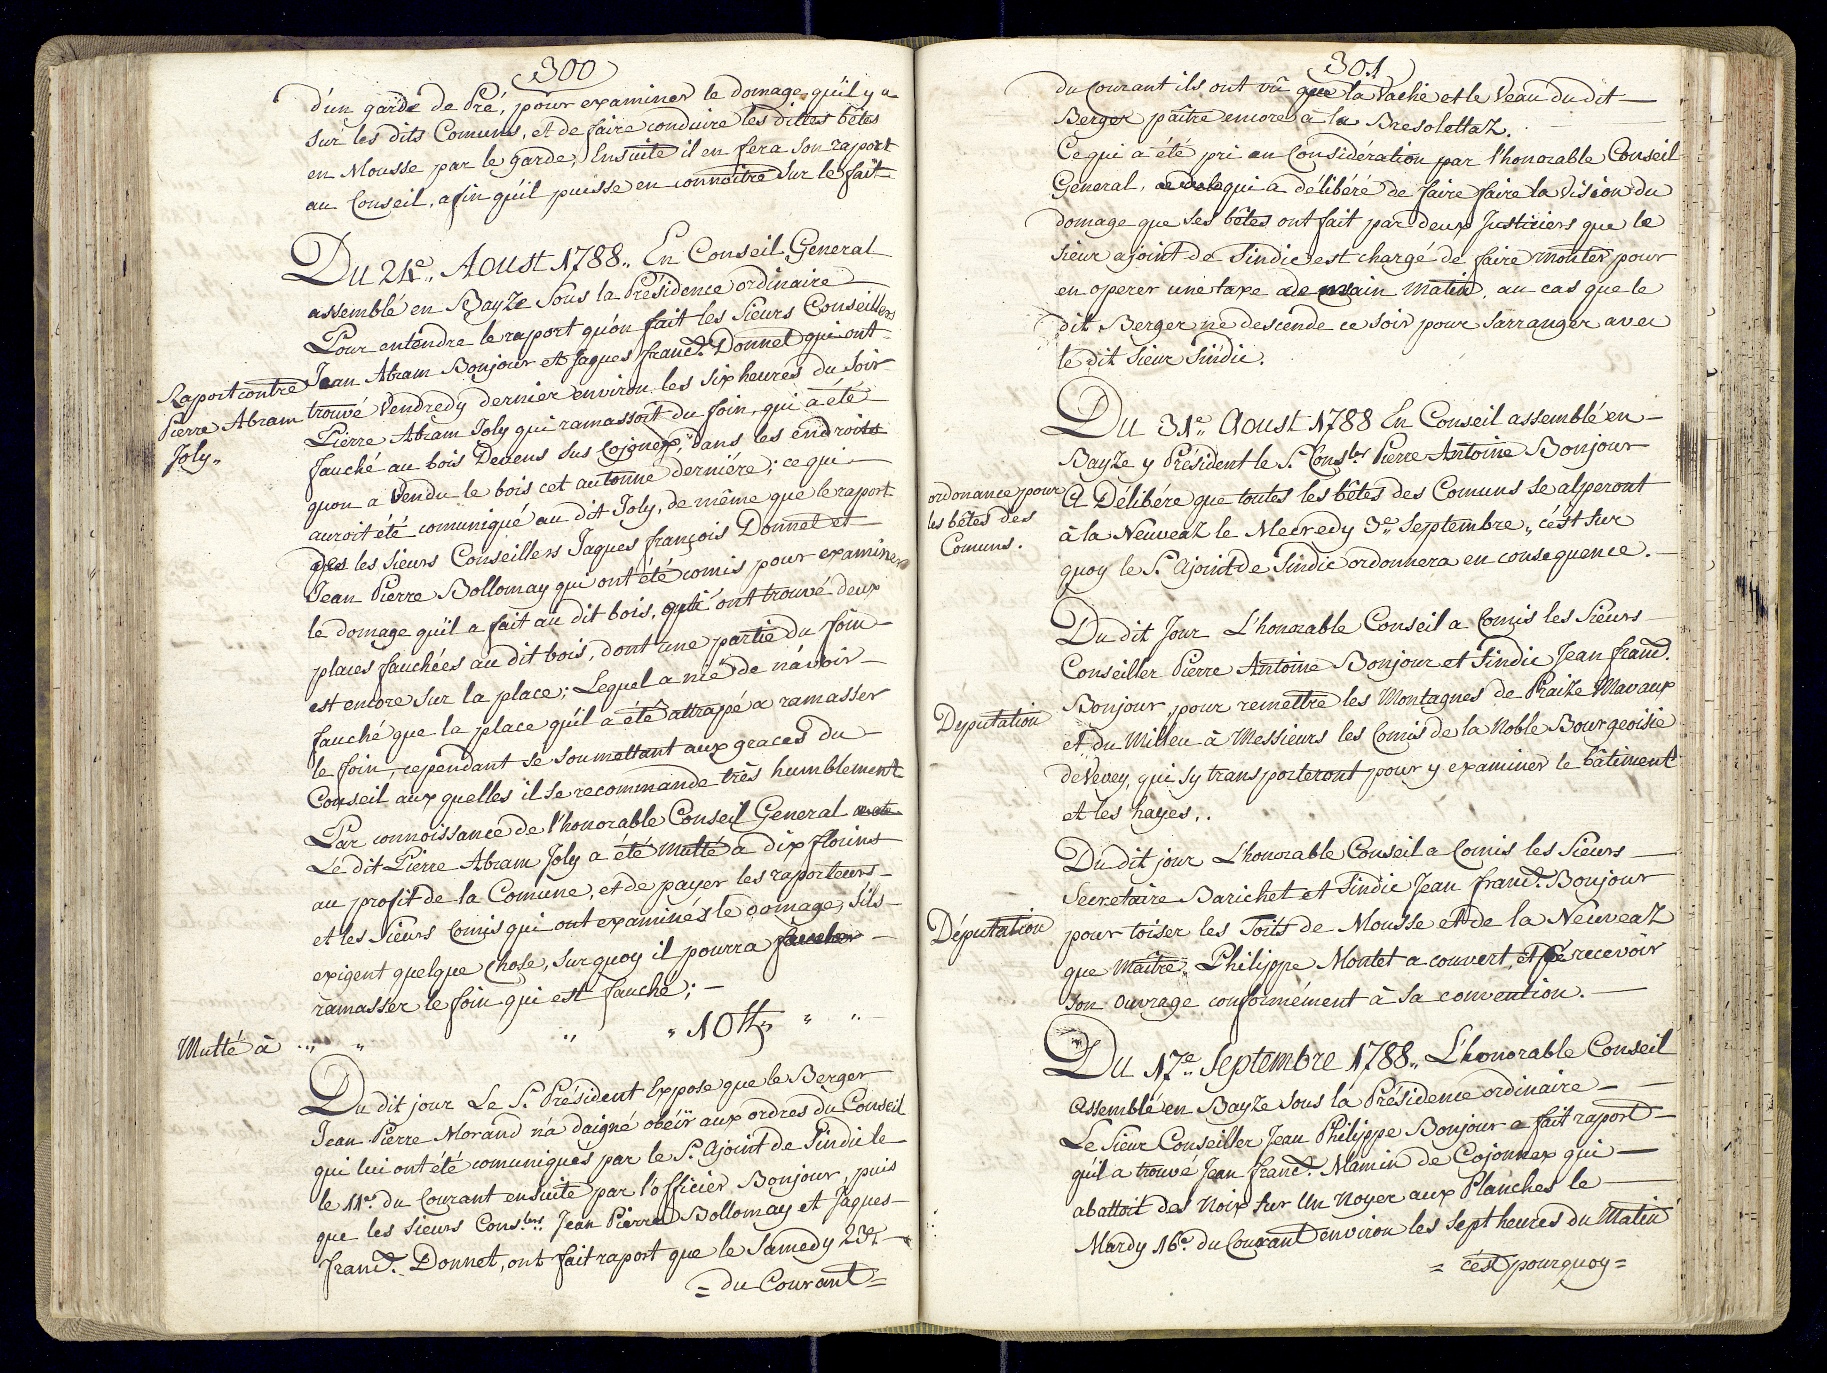 300
d'un garde de Pré, pour examiner le domage qu'il y a
sur les dits Comuns, et de faire conduire les dittes bêtes
en Mousse par le garde; Ensuite il en fera son raport
au Conseil, afin qu'il puisse en connoitre sur le fait
Du 24e. Aoust 1788. En Conseil General
assemblé en Bayze sous la Présidence ordinaire
Pour entendre le raport qu'on fait les Sieurs Conseillers
Jean Abram Bonjour et Jaques Franc.s Donnet qui ont
Raport contre
Pierre Abram
Joly.
trouvé Vendredy dernier environ les six heures du soir
Pierre Abram Joly qui ramassoit du foin, qui a été
fauché au bois Devens sus Cojonex, dans les endroits
quon a Vendu le bois cet automne derniére; ce qui
auroit été comuniqué au dit Joly, de même que le raport
des les Sieurs Conseillers Jaques françois Donnet et
Jean Pierre Bollomay qui ont été comis pour examiner
le domage qu'il a fait au dit bois, qui ont trouvé deux
places fauchées au dit bois, dont une partie du foin
est encore sur la place; Lequel a nié de n'avoir
fauché que la place qu'il a été attrapé a ramasser
le foin, cependant se soumettant aux graces du
Conseil aux quelles il se recommande très humblement
Par connoissance de l'honorable Conseil General
Le dit Pierre Abram Joly a été Multé a dix florins
au profit de la Comune, et de payer les raporteurs
et les Sieurs Comis qui ont examinés le domage, s'ils
exigent quelque Chose, sur quoy il pourra faucher
ramasser le foin qui est fauché;
Multé à „ „ „ „ 10 ff „ „
Du dit jour Le S.r Président Expose que le Berger
Jean Pierre Morand n'a daigné obeïr aux ordres du Conseil
qui lui ont été comuniqués par le S.r Ajoint de Sindic le
le 11e. du Courant ensuite par l'officier Bonjour, puis
que les Sieurs Cons.lers Jean Pierre Bollomay et Jaques
Franc.s Donnet, ont fait raport que le Samedy 23e.
= du Courant =
301
du Courant ils ont vû que la Vache et le Veau du dit
Berger paître encore à la Bresolettaz.
Ce qui a été pri en Considération par l'honorable Conseil
General, qui a délibéré de faire faire la Vision du
domage que ses bêtes ont fait par deux Justiciers que le
sieur ajoint de Sindic est chargé de faire monter pour
en operer une taxe demain matin, au cas que le
dit Berger ne descende ce soir pour sarranger avec
le dit sieur Sindic.
Du 31e. Aoust 1788 En Conseil assemblé en
Bayze y Président le S.r Cons.ler Pierre Antoine Bonjour
ordonance pour
les bêtes des
Comuns.
A Délibére que toutes les bêtes des Comuns se alperont
à la Neuveaz le Mecredy 3e. Septembre, c'est sur
quoy le S.r Ajoint de Sindic ordonnera en consequence.
Du dit Jour L'honorable Conseil a Comis les Sieurs
Conseiller Pierre Antoine Bonjour et Sindic Jean Franc.s
Deputation
Bonjour, pour remettre les Montagnes de Praize Mavaux
et du Milieu à Messieurs les Comis de la Noble Bourgeoisie
de Vevey, qui sy transporteront pour y examiner le bâtiment
et les hayes.
Du dit jour L'honorable Conseil a Comis les Sieurs
Secretaire Barichet et Sindic Jean Franc.s Bonjour
Députation
pour toiser les Toits de Mousse et de la Neuveaz
que Maître Philippe Montet a couvert, et recevoir
son ouvrage conformément à sa convention.
Du 17e. Septembre 1788. L'honorable Conseil
Assemblé en Bayze sous la Présidence ordinaire
Le Sieur Conseiller Jean Philippe Bonjour a fait raport
qu'il a trouvé Jean Franc.s Mamin de Cojonnex qui
abattoit des Noix sur Un Noyer aux Planches le
Mardy 16e. du Courant environ les sept heures du Matin
= c'est pourquoy =